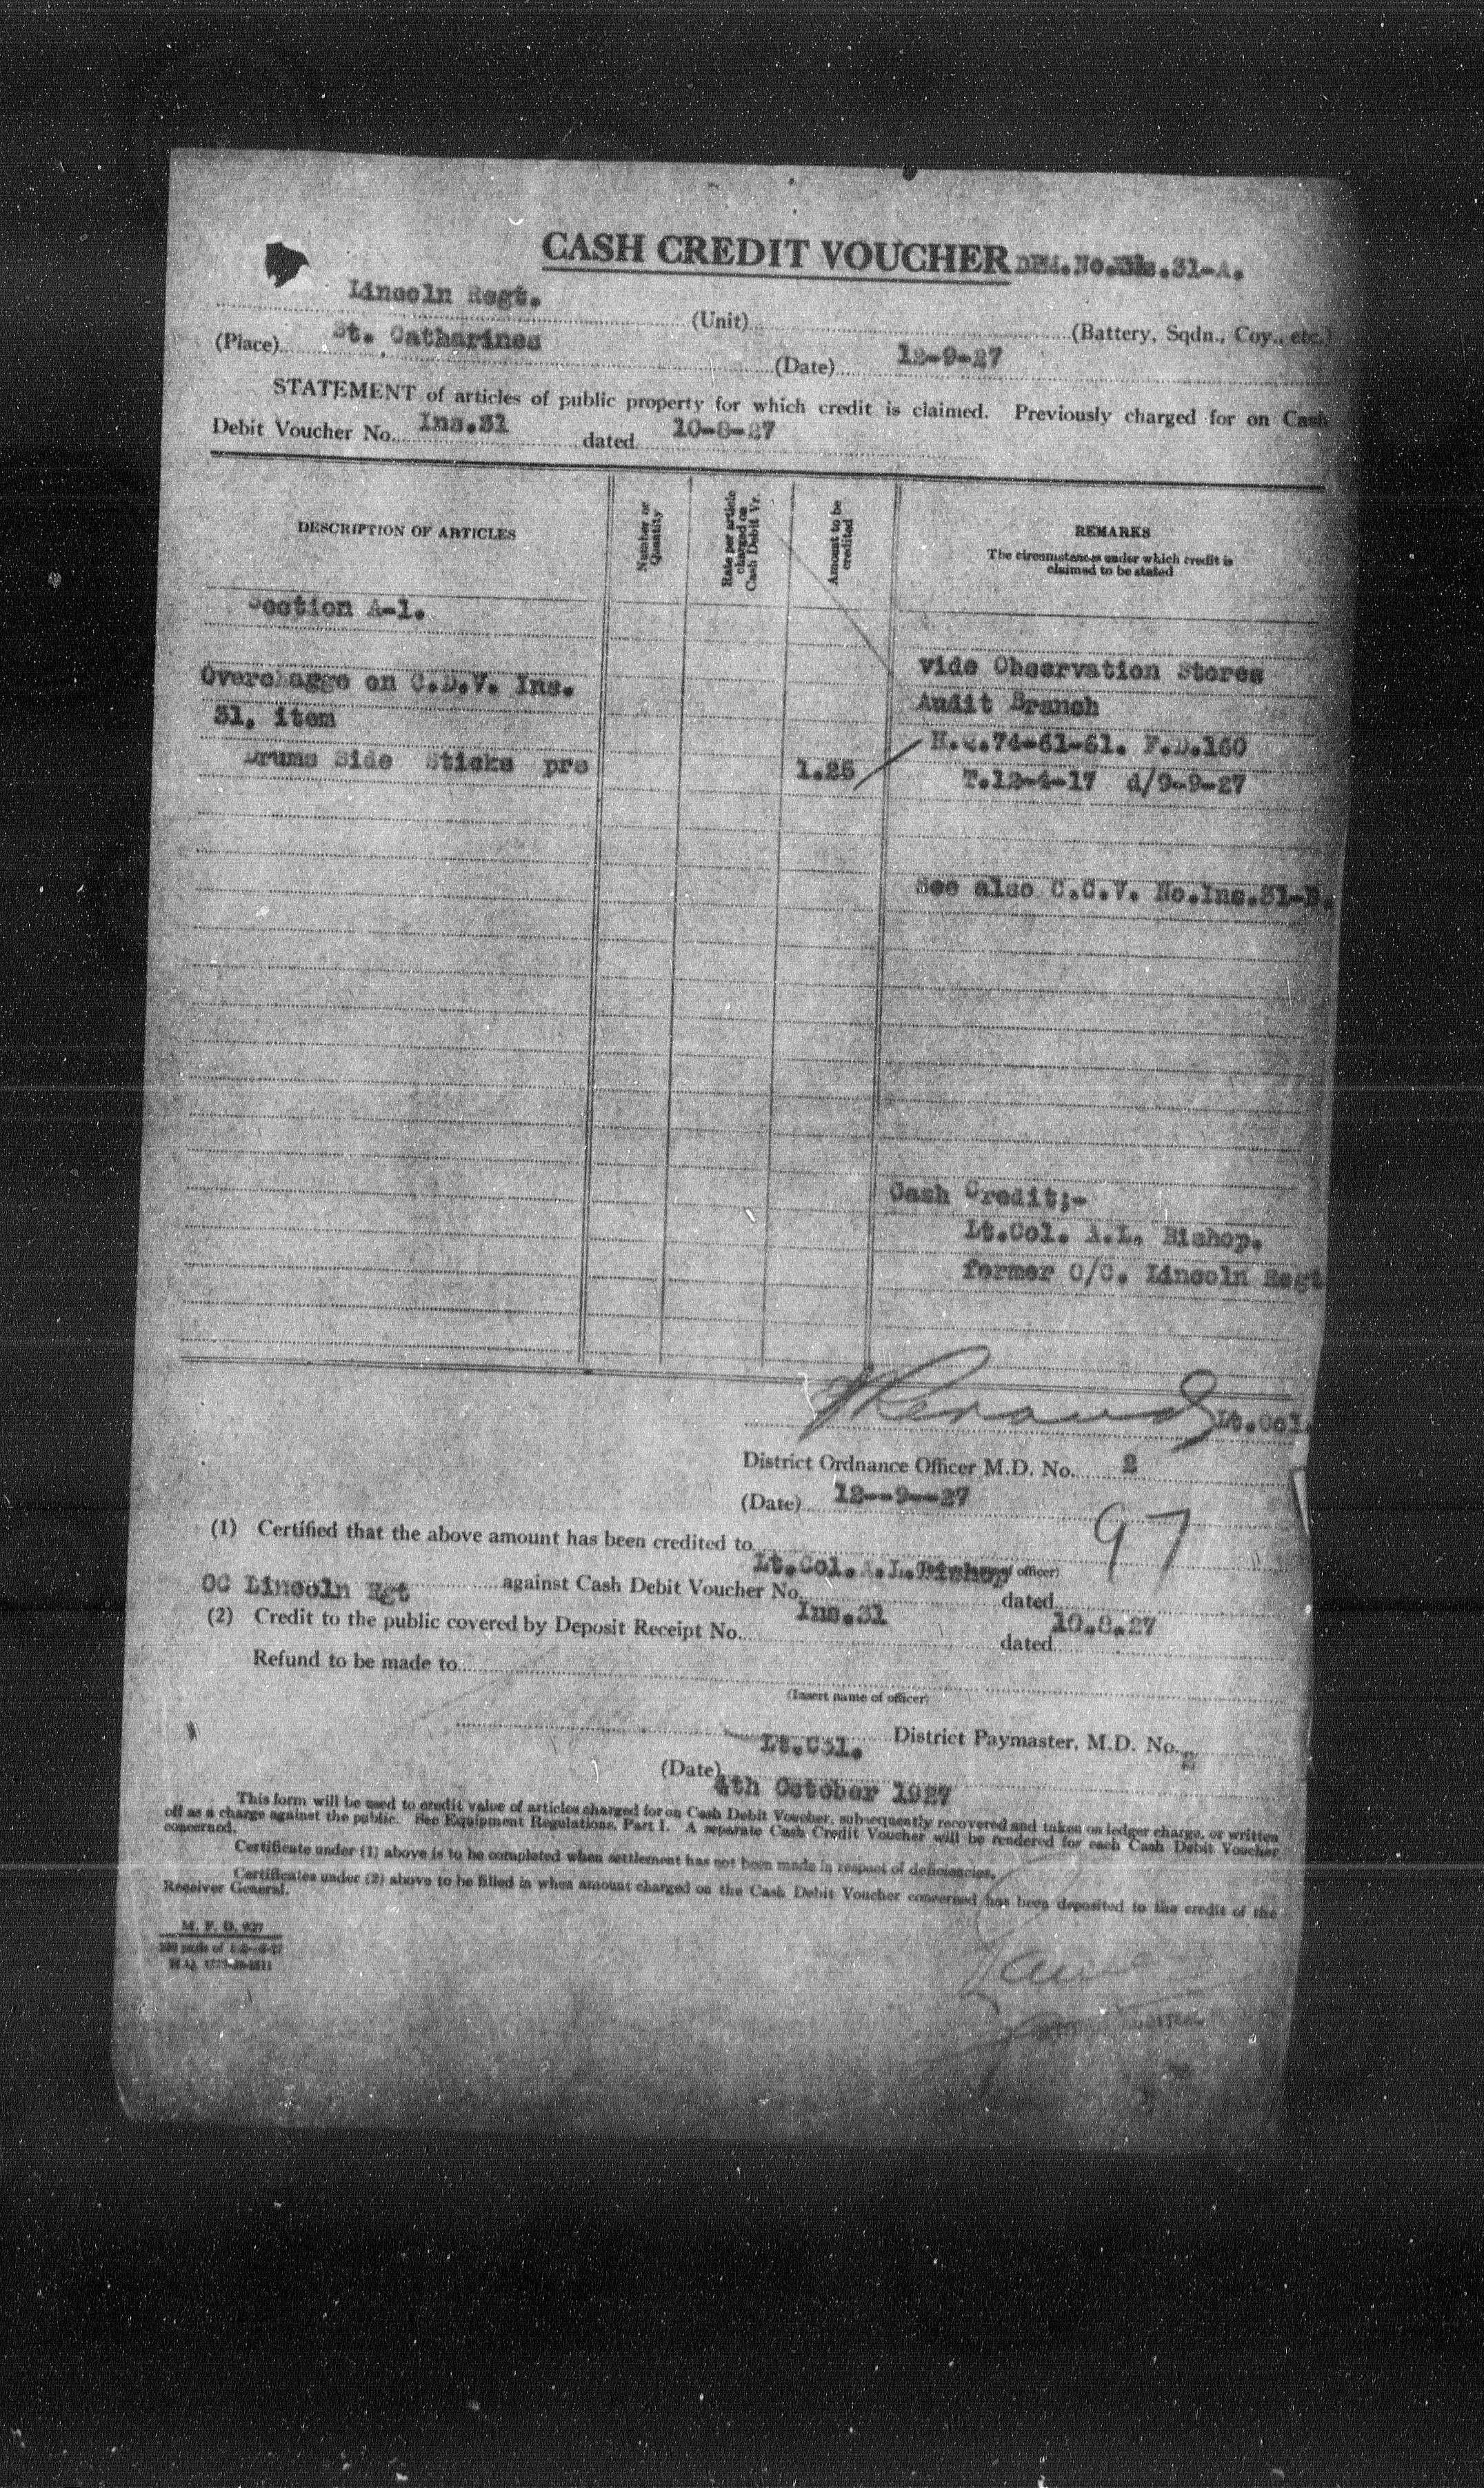 CASH CREDIT VOUCHER No. Ins.31-A.
Lincoln Regt. (Unit) (Battery, Sqdn., Coy., etc.)
(Place) St. Catharines (Date) 12-9-27
STATEMENT of articles of public property for which credit is claimed. Previously charged for on Cash
Debit Voucher No. Ins.31 dated 10-8-27
DESCRIPTION OF ARTICLES
Number or
Quantity
Rate per article
charged on
Cash Debit Vr.
Amount to be
credited
REMARKS
The circumstances under which credit is
claimed to be stated
Section A-1.
Overcharge on C.D.V. Ins. vide Observation Stores
31, item Audit Branch
H.Q.74-61-61. F.D.160
Drums Side Sticks prs 1.25 T.12-4-17 d/9-9-27
See also C.C.V. No.Ins.31-B.
Cash Credit;-
Lt.Col. A.L. Bishop.
former O/C. Lincoln Regt
Lt.Col.
District Ordnance Officer M.D. No. 2
(Date) 12--9--27
97
(1) Certified that the above amount has been credited to
Lt.Col. A.L.Bishop officer)
OC Lincoln Rgt against Cash Debit Voucher No. dated
Ins.31 10.8.27
(2) Credit to the public covered by Deposit Receipt No. dated
Refund to be made to
(Insert name of officer)
Lt.Col. District Paymaster, M.D. No. 2
(Date)
4th October 1927
This form will be used to credit value of articles charged for on Cash Debit Voucher, subsequently recovered and taken on ledger charge, or written
off as a charge against the public. See Equipment Regulations, Part I. A separate Cash Credit Voucher will be rendered for each Cash Debit Voucher
concerned.
Certificate under (1) above is to be completed when settlement has not been made in respect of deficiencies.
Certificates under (2) above to be filled in when amount charged on the Cash Debit Voucher concerned has been deposited to the credit of the
Receiver General.
M. F. D. 927